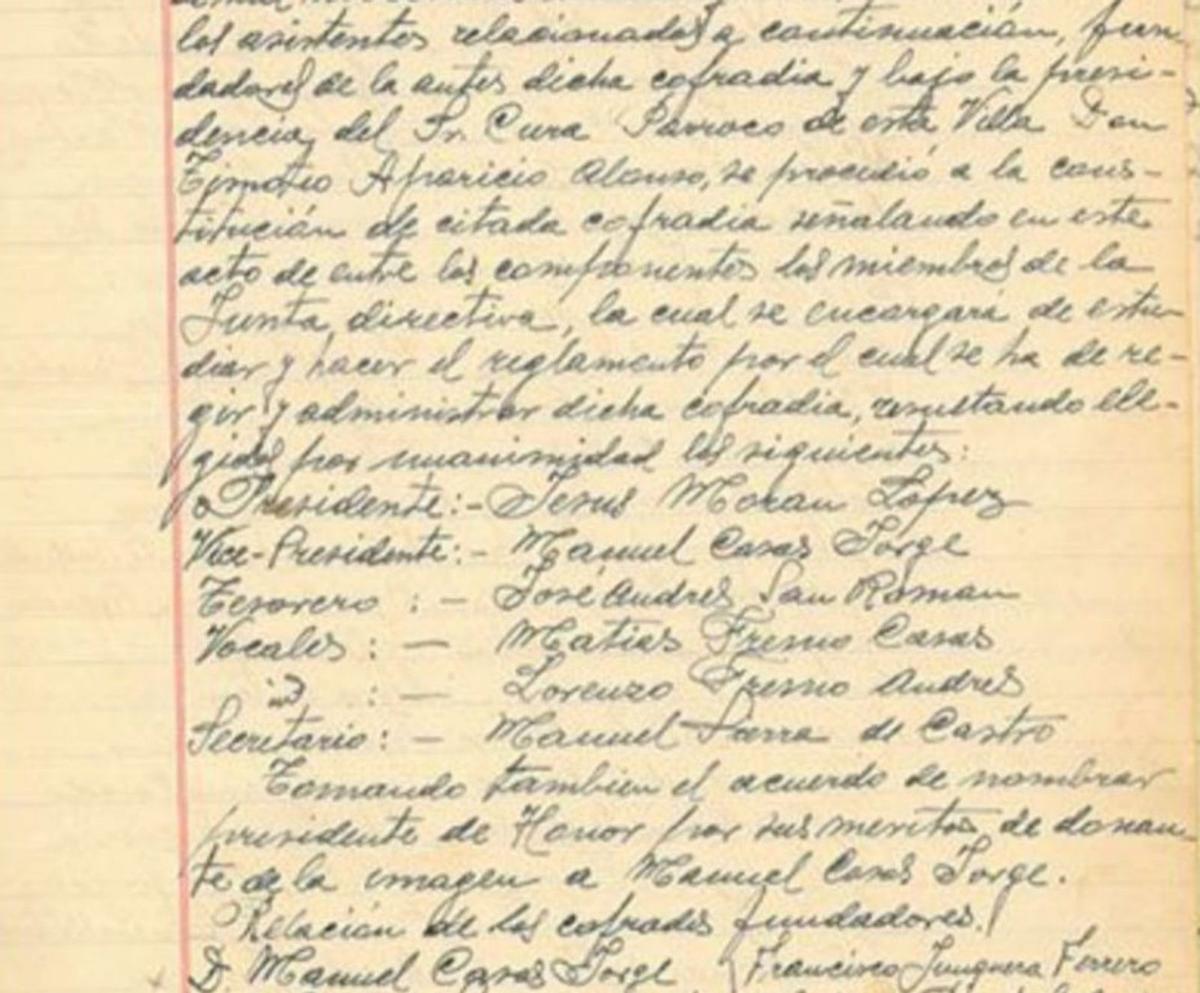 los asistentes relacionados a continuación, fun
dadores de la antes dicha cofradia y bajo la presi-
dencia del Sr. Cura Parroco de esta Villa Don
Timoteo Aparicio Alonso, se procedió a la cons-
titución de citada cofradia señalando en este
acto de entre los componentes los miembros de la
Junta directiva, la cual se encargará de estu-
diar y hacer el reglamento por el cual se ha de re-
gir y administrar dicha cofradia, resultando ele-
gidos por unanimidad los siguientes:
Presidente:- Jesus Moran López
Vice-Presidente:- Manuel Casas Jorge
Tesorero :- José Andrés San Roman
Vocales : - Matias Fresno Casas
id : - Lorenzo Fresno Andres
Secretario: - Manuel Sierra de Castro
Tomando tambien el acuerdo de nombrar
presidente de Honor por sus meritos de donan
te de la imagen a Manuel Casas Jorge.
Relación de los cofrades fundadores.
D. Manuel Casas Jorge Francisco Junquera Ferrero